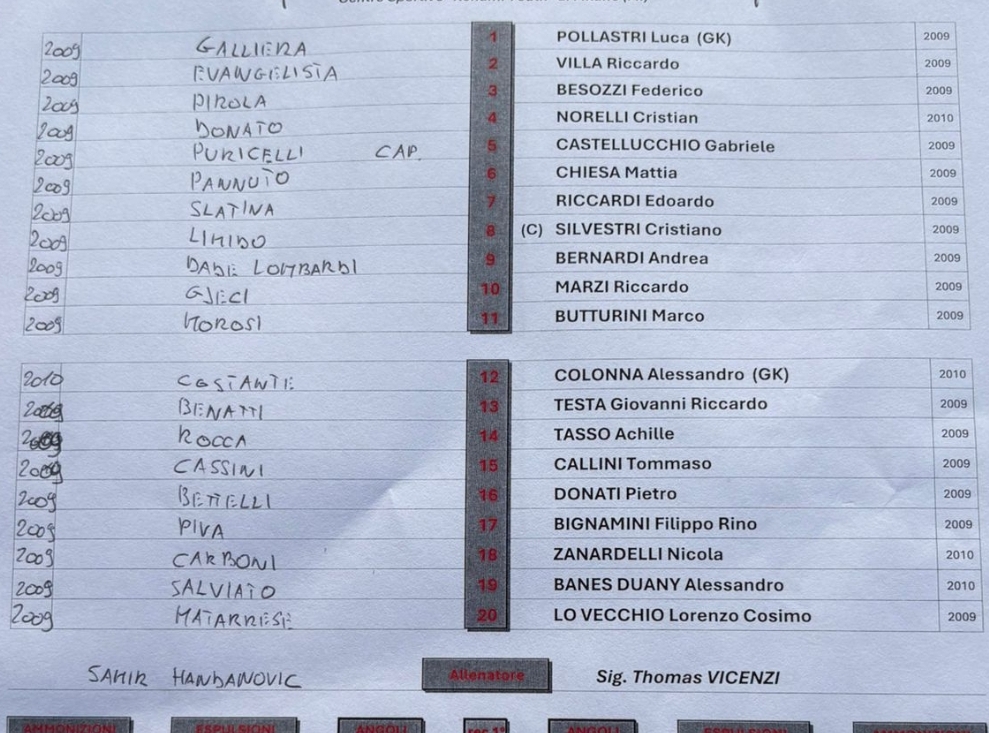 2009 GALLIERA 1 POLLASTRI Luca (GK) 2009
2009 EVANGELISTA 2 VILLA Riccardo 2009
2009 PIROLA 3 BESOZZI Federico 2009
2009 DONATO 4 NORELLI Cristian 2010
2009 PURICELLI CAP. 5 CASTELLUCCHIO Gabriele 2009
2009 PANNUTO 6 CHIESA Mattia 2009
2009 SLATINA 7 RICCARDI Edoardo 2009
2009 LIMIDO 8 (C) SILVESTRI Cristiano 2009
2009 DADE LOMBARDI 9 BERNARDI Andrea 2009
2009 GJECI 10 MARZI Riccardo 2009
2009 MOROSI 11 BUTTURINI Marco 2009
2010 COSTANTE 12 COLONNA Alessandro (GK) 2010
2009 BENATTI 13 TESTA Giovanni Riccardo 2009
2009 ROCCA 14 TASSO Achille 2009
2009 CASSINI 15 CALLINI Tommaso 2009
2009 BETTELLI 16 DONATI Pietro 2009
2009 PIVA 17 BIGNAMINI Filippo Rino 2009
2009 CARBONI 18 ZANARDELLI Nicola 2010
2009 SALVIATO 19 BANES DUANY Alessandro 2010
2009 MATARRESE 20 LO VECCHIO Lorenzo Cosimo 2009
SAMIR HANDANOVIC Allenatore Sig. Thomas VICENZI
AMMONIZIONI ESPULSIONI ANGOLI rec 1° ANGOLI ESPULSIONI AMMONIZIONI